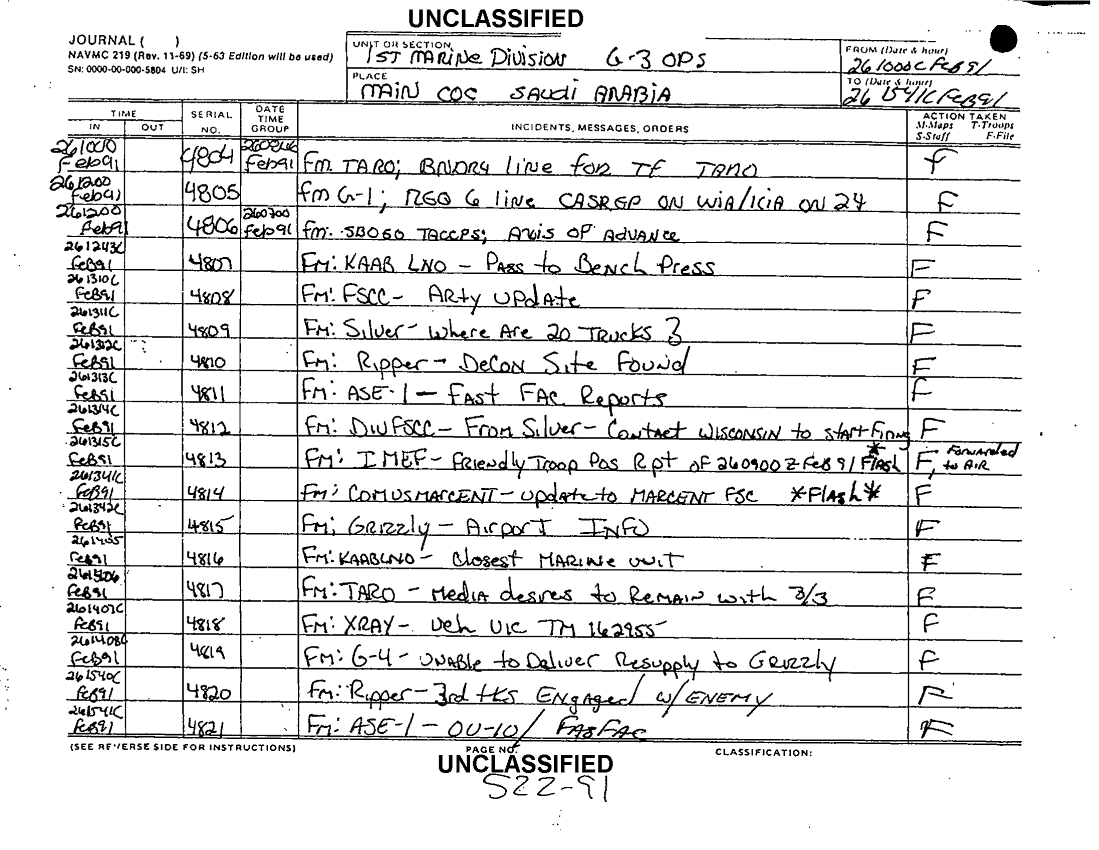 UNCLASSIFIED
JOURNAL ( )
NAVMC 219 (Rev. 11-69) (5-63 Edition will be used)
SN: 0000-00-000-5804 U/I: SH
UNIT OR SECTION
1ST MARINE Division G-3 OPS
PLACE
MAIN COC SAUDI ARABIA
FROM (Date & hour)
261000C Feb 91
TO (Date & hour)
26 1541C Feb91
TIME
IN OUT
SERIAL NO.
DATE TIME GROUP
INCIDENTS, MESSAGES, ORDERS
ACTION TAKEN
M-Maps T-Troops
S-Staff F-File
Feb91 4804 Feb91 Fm TARO; BNDRY line for TF TARO F
261200 Feb91 4805 fm G-1; REQ 6 line CASREP ON WIA/KIA ON 24 F
261200 Feb91 4806 260700 Feb91 fm: SBO60 TACCPS; AXIS OF ADVANCE F
261243C Feb91 4807 Fm: KAAB LNO - Pass to Bench Press F
261310C Feb91 4808 Fm: FSCC - Arty UPdAte F
261311C Feb91 4809 Fm: Silver - Where Are 20 Trucks F
261312C Feb91 4810 Fm: Ripper - DeCon Site Found F
261313C Feb91 4811 Fm: ASE-1 - Fast FAC Reports F
261314C Feb91 4812 Fm: DivFSCC - From Silver - Contact WISCONSIN to start Firing F
261315C Feb91 4813 Fm: I MEF - Friendly Troop Pos Rpt of 260900Z Feb 91 Flash * F, Forwarded to AIR
261341C Feb91 4814 Fm: COMUSMARCENT - update to MARCENT FSC *Flash* F
261342C Feb91 4815 Fm: Grizzly - Airport INFO F
261405 Feb91 4816 Fm: KAABLNO - Closest MARINE UNIT F
Feb91 4817 Fm: TARO - Media desires to Remain with 3/3 F
261407C Feb91 4818 Fm: XRAY - Veh VIC TM 162955 F
261408C Feb91 4819 Fm: G-4 - UNAble to Deliver Resupply to GRIZZly F
261540C Feb91 4820 Fm: Ripper - 3rd tks ENgAged w/ ENEMY F
261541C Feb91 4821 Fm: ASE-1 - OV-10/ FASFAC F
(SEE REVERSE SIDE FOR INSTRUCTIONS)
PAGE NO.
CLASSIFICATION:
UNCLASSIFIED
S22-91